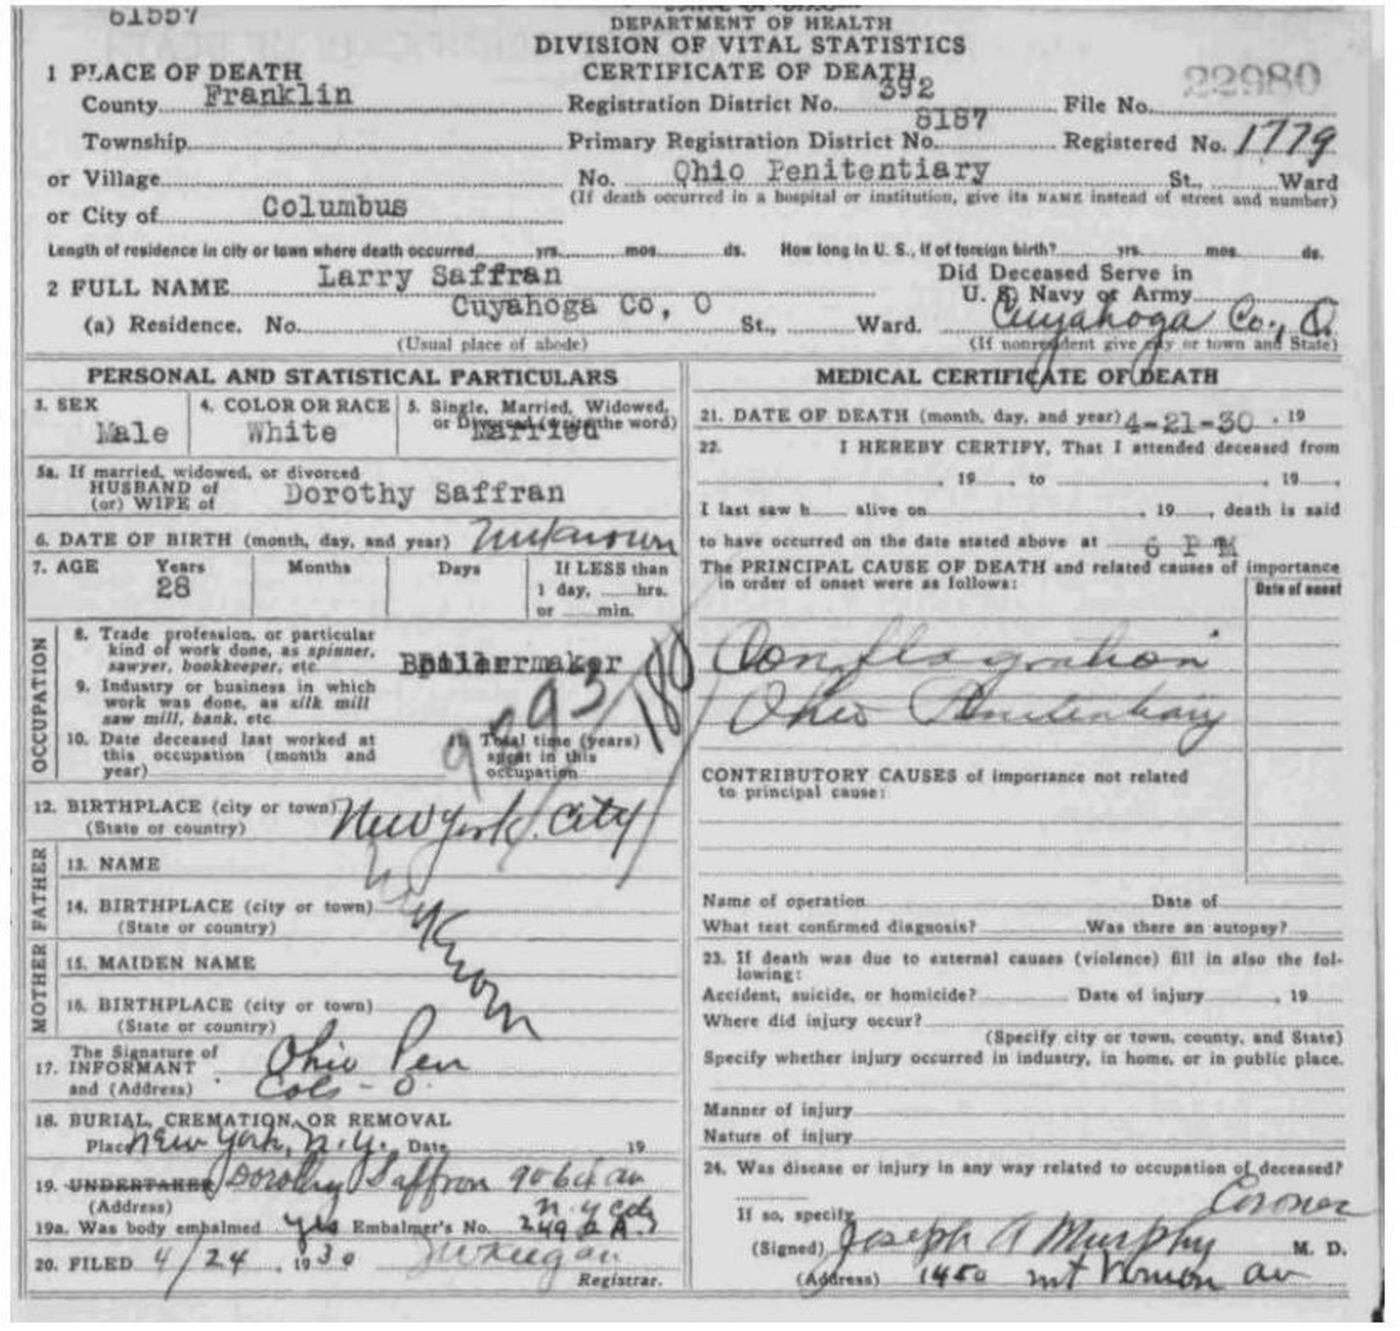 61557
DEPARTMENT OF HEALTH
DIVISION OF VITAL STATISTICS
CERTIFICATE OF DEATH
1 PLACE OF DEATH
22980
County Franklin Registration District No. 392 File No.
Township Primary Registration District No. 8187 Registered No. 1779
or Village No. Ohio Penitentiary St., Ward
or City of Columbus (If death occurred in a hospital or institution, give its NAME instead of street and number)
Length of residence in city or town where death occurred yrs. mos. ds. How long in U. S., if of foreign birth? yrs. mos. ds.
2 FULL NAME Larry Saffran Did Deceased Serve in
U. S. Navy or Army
(a) Residence. No. Cuyahoga Co, O St., Ward. Cuyahoga Co., O.
(Usual place of abode) (If nonresident give city or town and State)
PERSONAL AND STATISTICAL PARTICULARS
3. SEX 4. COLOR OR RACE 5. Single, Married, Widowed,
or Divorced (write the word)
Male White Married
5a. If married, widowed, or divorced
HUSBAND of
(or) WIFE of Dorothy Saffran
6. DATE OF BIRTH (month, day, and year) Unknown
7. AGE Years Months Days If LESS than
28 1 day, hrs.
or min.
OCCUPATION
8. Trade profession, or particular
kind of work done, as spinner,
sawyer, bookkeeper, etc Boilermaker
9. Industry or business in which
work was done, as silk mill
saw mill, bank, etc.
10. Date deceased last worked at
this occupation (month and
year)
11. Total time (years)
spent in this
occupation
180
12. BIRTHPLACE (city or town) New York City
(State or country)
FATHER
13. NAME
14. BIRTHPLACE (city or town)
(State or country)
MOTHER
15. MAIDEN NAME
16. BIRTHPLACE (city or town)
(State or country)
17. The Signature of
INFORMANT Ohio Pen
and (Address) Cols - O.
18. BURIAL, CREMATION, OR REMOVAL
Place New York, N.Y. Date 19
19. UNDERTAKER Dorothy Saffron
(Address)
19a. Was body embalmed Yes Embalmer's No. 2492 A
20. FILED 4/24, 1930
Registrar.
MEDICAL CERTIFICATE OF DEATH
21. DATE OF DEATH (month, day, and year) 4-21-30 , 19
22. I HEREBY CERTIFY, That I attended deceased from
, 19 , to , 19 ,
I last saw h alive on , 19 , death is said
to have occurred on the date stated above at 6 PM
The PRINCIPAL CAUSE OF DEATH and related causes of importance
in order of onset were as follows:
Date of onset
Conflagration
Ohio Penitentiary
CONTRIBUTORY CAUSES of importance not related
to principal cause:
Name of operation Date of
What test confirmed diagnosis? Was there an autopsy?
23. If death was due to external causes (violence) fill in also the fol-
lowing:
Accident, suicide, or homicide? Date of injury , 19
Where did injury occur?
(Specify city or town, county, and State)
Specify whether injury occurred in industry, in home, or in public place.
Manner of injury
Nature of injury
24. Was disease or injury in any way related to occupation of deceased?
If so, specify Coroner
(Signed) Joseph A Murphy M. D.
(Address) 1450 Mt Vernon av